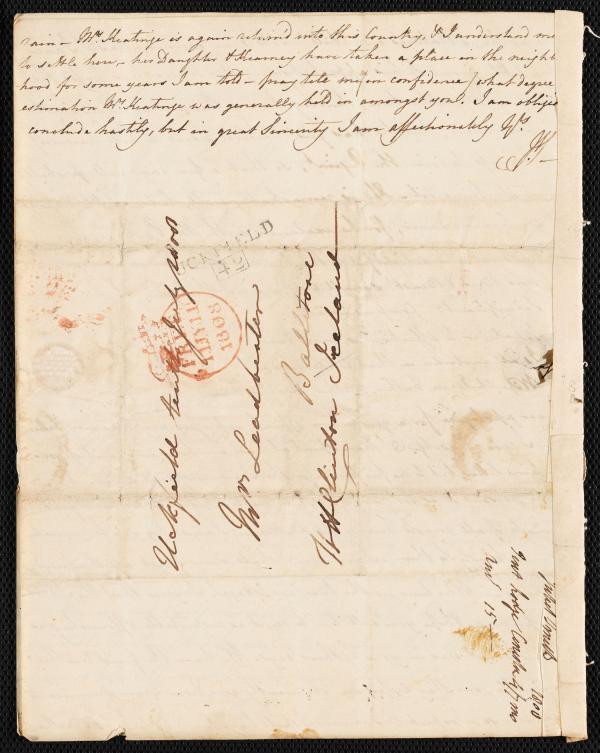 rain – Mrs. Keatinge is again retired into this Country, & I understand me
to settle here – her Daughter & Kearney have taken a place in the neighb
hood for some years I am told – pray tell me in confidence / what degree
estimation Mrs. Keatinge was generally held in amongst you. I am obliged
conclude hastily, but in great Sincerity I am affectionately Yrs.
Uckfield tenth July 1808
Mrs. Leadbeater
Balitore
Ireland
UCKFIELD
42
FREE
1808
1808
recd 15